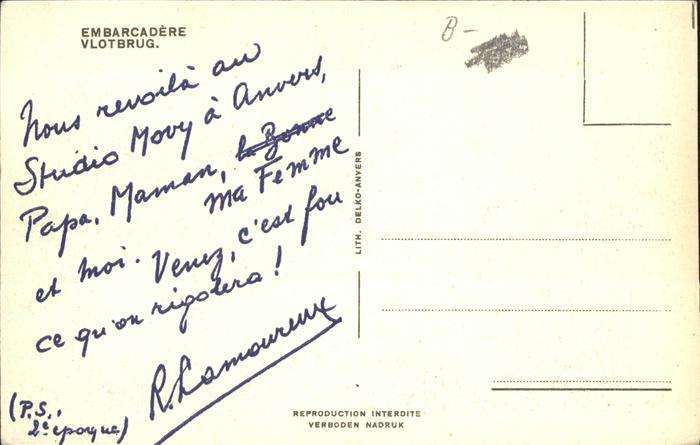 EMBARCADÈRE
VLOTBRUG.
B-
Nous revoilà au
Studio Movy à Anvers,
Papa, Maman, la Bonne
ma Femme
et moi. Venez, c'est fou
ce qu'on rigolera !
R. Lamoureux
(P.S.,
2e époque)
LITH. DELKO-ANVERS
REPRODUCTION INTERDITE
VERBODEN NADRUK